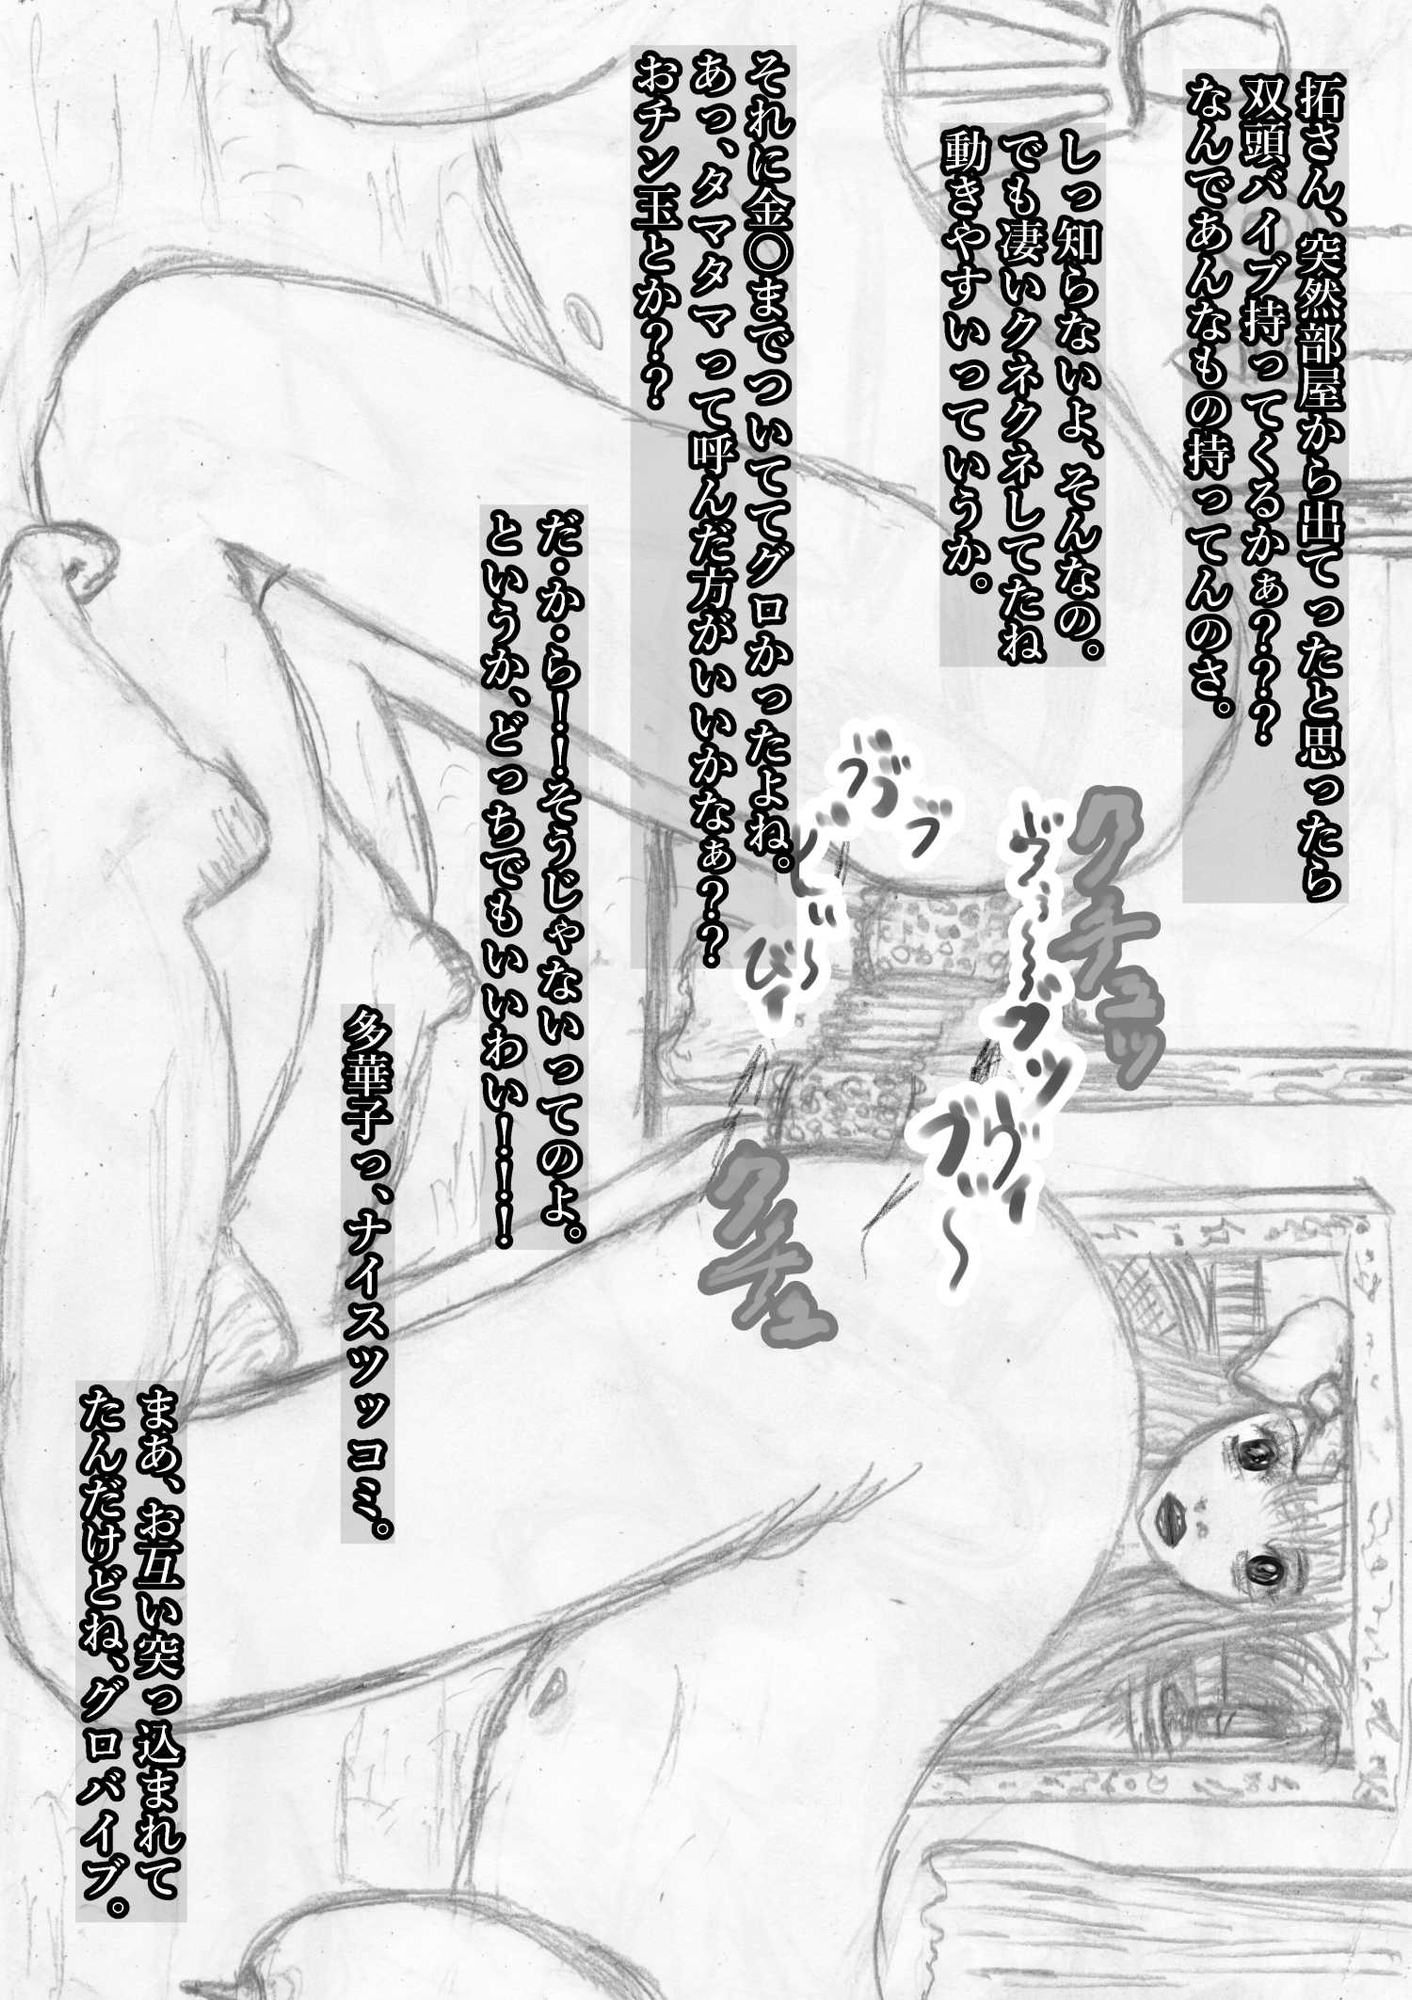 拓さん、突然部屋から出てったと思ったら
双頭バイブ持ってくるかぁ？？？
なんであんなもの持ってんのさ。
しっ知らないよ、そんなの。
でも凄いクネクネしてたね
動きやすいっていうか。
それに金〇までついててグロかったよね。
あっ、タマタマって呼んだ方がいいかなぁ？？
おチン玉とか？？
だ・か・ら！！そうじゃないってのよ。
というか、どっちでもいいわい！！！
多華子っ、ナイスツッコミ。
まあ、お互い突っ込まれて
たんだけどね、グロバイブ。
クチュッ
クチュ